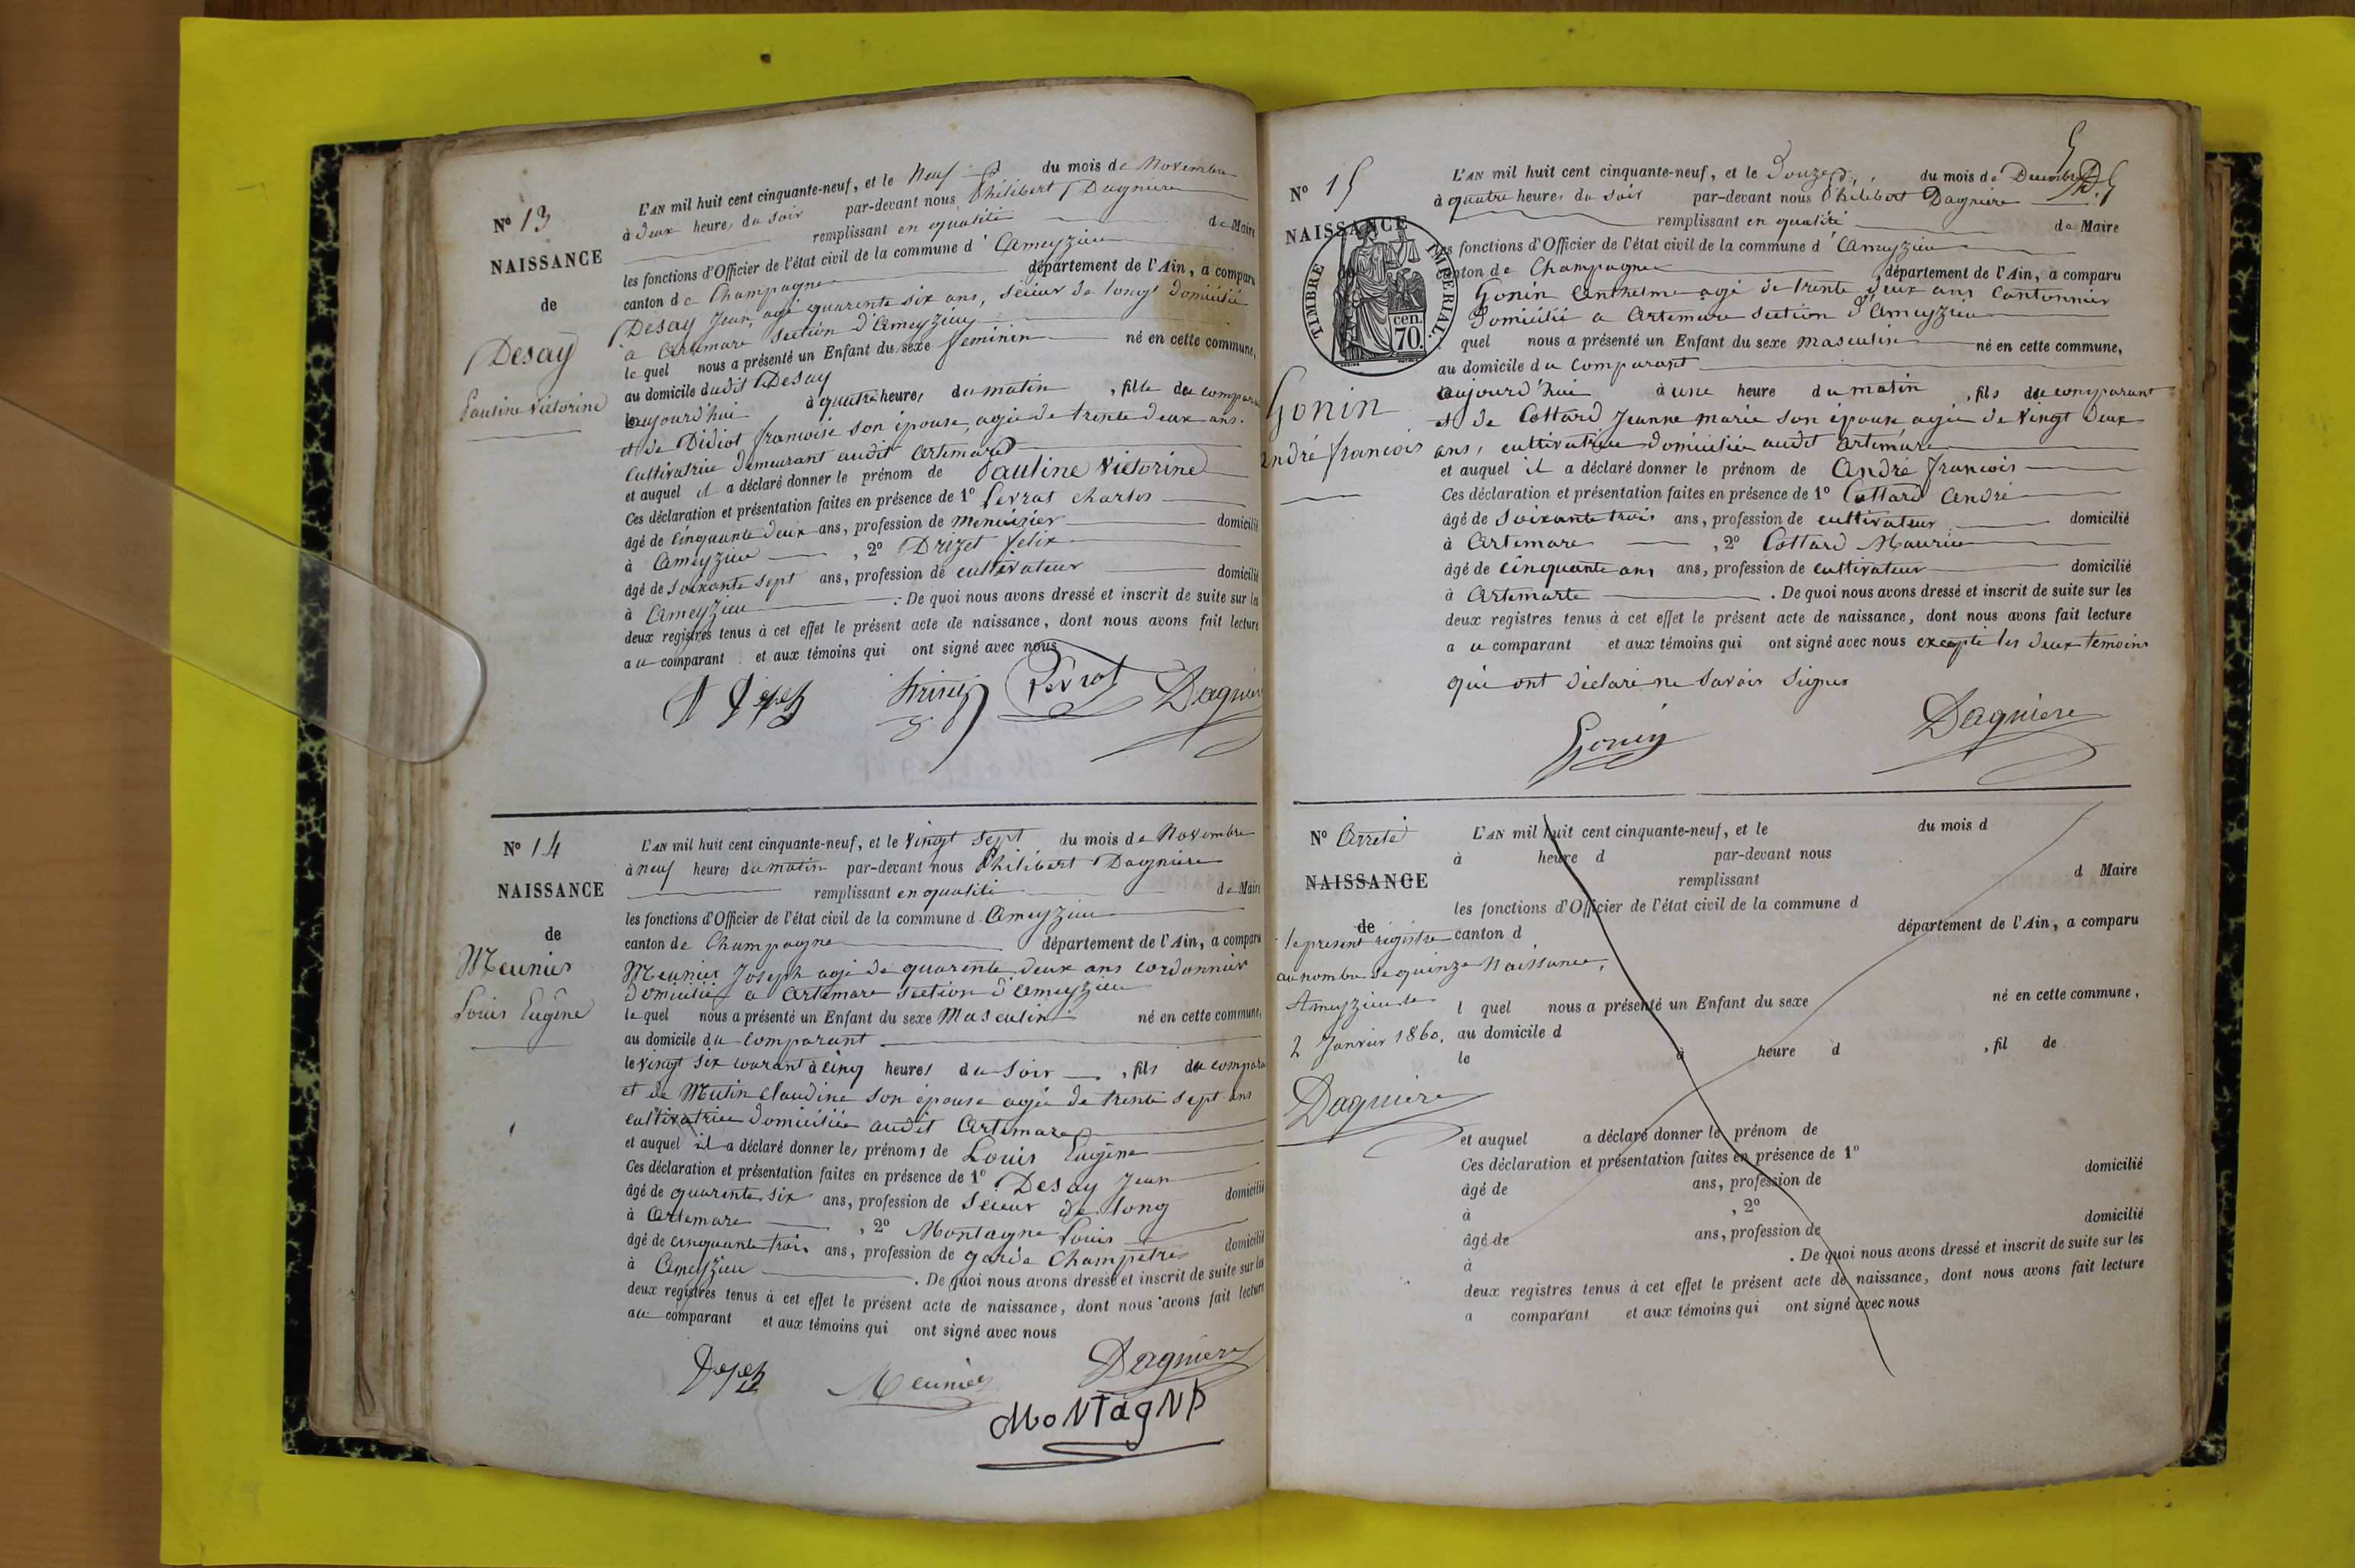 N° 13
NAISSANCE
de
Desay
Pauline Victorine
L'AN mil huit cent cinquante-neuf, et le Neuf du mois de Novembre
à deux heures du soir par-devant nous Philibert Dagnière
remplissant en qualité de Maire
les fonctions d'Officier de l'état civil de la commune d'Ameyzieu
canton de Champagne département de l'Ain, a comparu
Desay Jean, agé quarente six ans, scieur de long domicilié
a Artemare section d'Ameyzieu
le quel nous a présenté un Enfant du sexe feminin né en cette commune,
au domicile dudit Desay
aujourd'hui à quatre heures du matin, fille du compara
et de Didiot francoise son épouse, agée de trente deux ans.
Cultivatrice demeurant audit Artemare
et auquel il a déclaré donner le prénom de Pauline Victorine
Ces déclaration et présentation faites en présence de 1° Pevrat Charles
âgé de Cinquante deux ans, profession de menuisier domicilié
à Ameyzieu, 2° Drizet felix
âgé de Soixante sept ans, profession de cultivateur domicilié
à Ameyzieu . De quoi nous avons dressé et inscrit de suite sur les
deux registres tenus à cet effet le présent acte de naissance, dont nous avons fait lecture
au comparant et aux témoins qui ont signé avec nous
Pevrat Dagnière
N° 14
NAISSANCE
de
Meunier
Louis Eugène
L'AN mil huit cent cinquante-neuf, et le Vingt sept du mois de Novembre
à neuf heures du matin par-devant nous Philibert Dagnière
remplissant en qualité de Maire
les fonctions d'Officier de l'état civil de la commune d Ameyzieu
canton de Champagne département de l'Ain, a comparu
Meunier Joseph agé de quarente deux ans cordonnier
domicilié a Artemare section d'Ameyzieu
le quel nous a présenté un Enfant du sexe Masculin né en cette commune,
au domicile du comparant
le vingt six courant à cinq heures du soir, fils du compara
et de Mutin Claudine son épouse agée de trente sept ans
cultivatrice domiciliée audit Artemare
et auquel il a déclaré donner les prénoms de Louis Eugène
Ces déclaration et présentation faites en présence de 1° Desay Jean
âgé de quarente six ans, profession de scieur de long domicilié
à Artemare, 2° Montagne Louis
âgé de cinquante trois ans, profession de garde Champêtre domicilié
à Ameyzieu . De quoi nous avons dressé et inscrit de suite sur les
deux registres tenus à cet effet le présent acte de naissance, dont nous avons fait lecture
au comparant et aux témoins qui ont signé avec nous
Meunier Dagnière
MoNTagNe
N° 15
NAISSANCE
de
TIMBRE IMPERIAL.
70. cen.
Gonin
andré francois
L'AN mil huit cent cinquante-neuf, et le Douze du mois de Decembre
à quatre heures du soir par-devant nous Philibert Dagnière
remplissant en qualité de Maire
les fonctions d'Officier de l'état civil de la commune d'Ameyzieu
canton de Champagne département de l'Ain, a comparu
Gonin Anthelme agé de trente deux ans Cantonnier
domicilié a Artemare section d'Ameyzieu
quel nous a présenté un Enfant du sexe masculin né en cette commune,
au domicile du Comparant
aujourd'hui à une heure du matin, fils du comparant
et de Cottard Jeanne marie son épouse agée de vingt deux
ans, cultivatrice domiciliée audit artemare
et auquel il a déclaré donner le prénom de André francois
Ces déclaration et présentation faites en présence de 1° Cottard André
âgé de Soixante trois ans, profession de cultivateur domicilié
à Artemare, 2° Cottard Maurice
âgé de cinquante ans ans, profession de cultivateur domicilié
à Artemarte . De quoi nous avons dressé et inscrit de suite sur les
deux registres tenus à cet effet le présent acte de naissance, dont nous avons fait lecture
au comparant et aux témoins qui ont signé avec nous excepté les deux temoins
qui ont déclaré ne savoir signer
Gonin Dagnière
N° Arreté
NAISSANCE
de
le présent registre
au nombre de quinze Naissances,
Ameyzieu le
2 Janvier 1860.
Dagnière
L'AN mil huit cent cinquante-neuf, et le du mois d
à heure d par-devant nous
remplissant d Maire
les fonctions d'Officier de l'état civil de la commune d
canton d département de l'Ain, a comparu
l quel nous a présenté un Enfant du sexe né en cette commune,
au domicile d
le à heure d, fil de
et auquel a déclaré donner le prénom de
Ces déclaration et présentation faites en présence de 1°
âgé de ans, profession de domicilié
à, 2°
âgé de ans, profession de domicilié
à . De quoi nous avons dressé et inscrit de suite sur les
deux registres tenus à cet effet le présent acte de naissance, dont nous avons fait lecture
a comparant et aux témoins qui ont signé avec nous